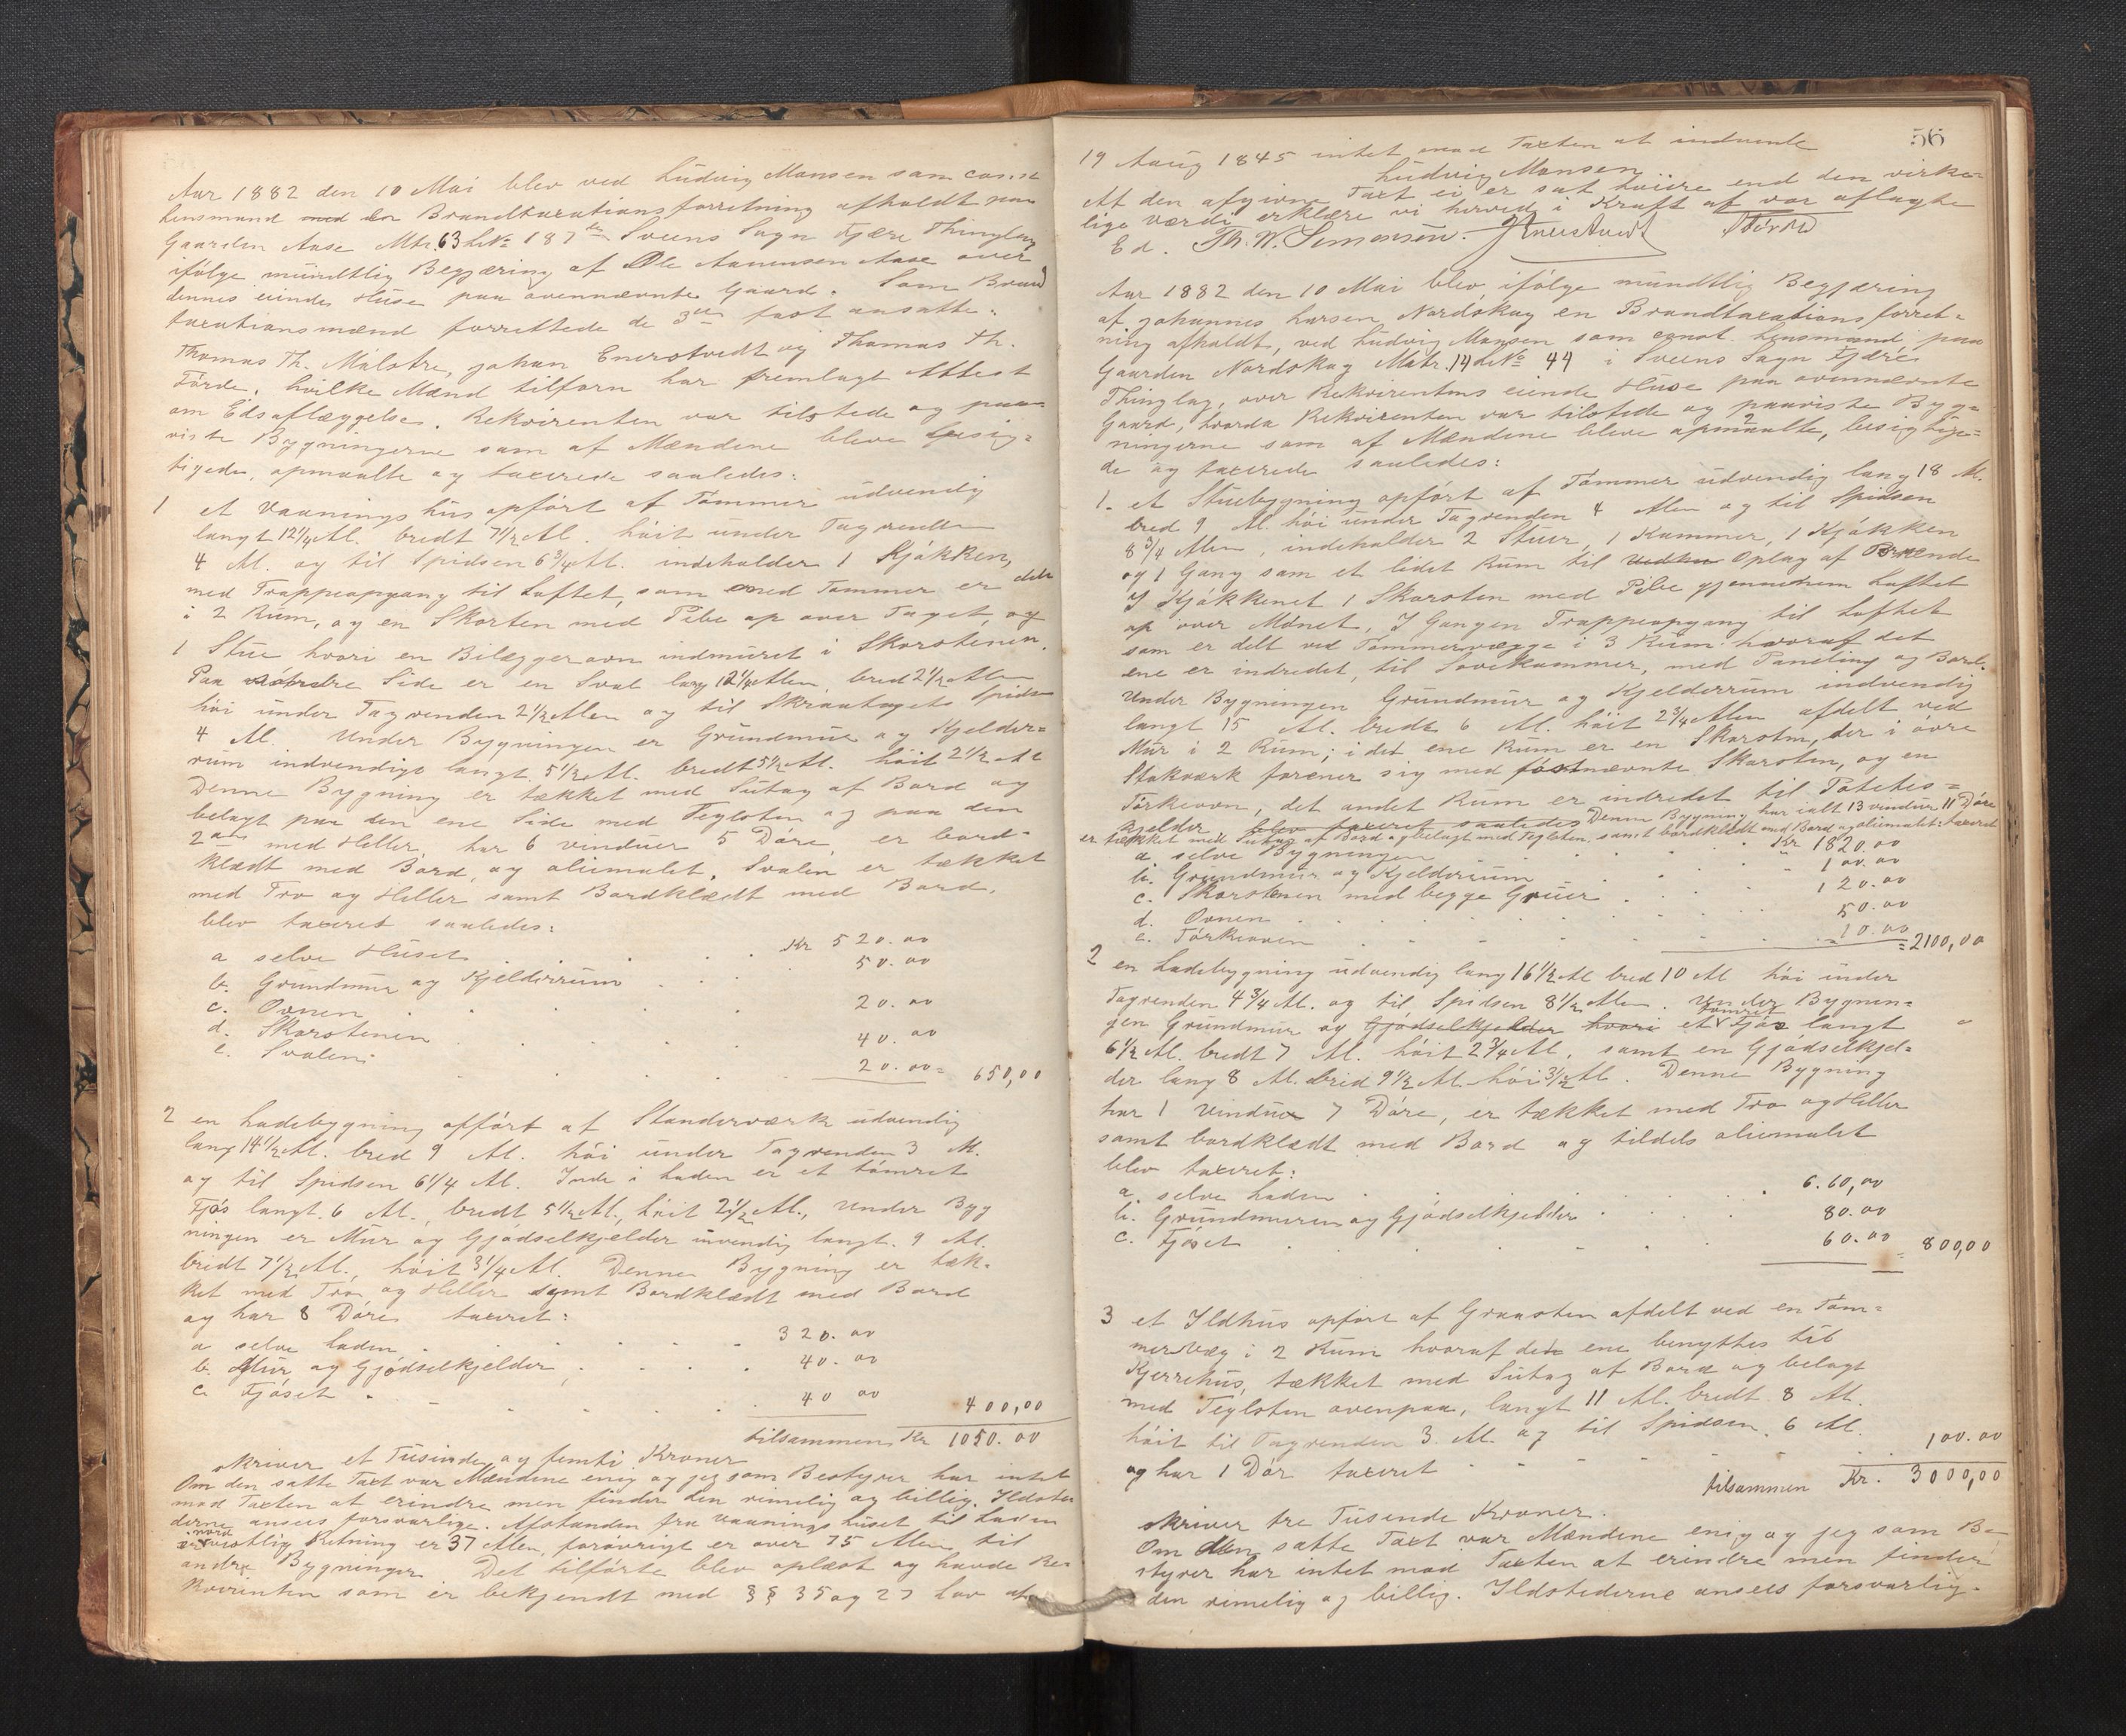 Aar 1882 den 10 Mai blev ved Ludvig Monsen som const
Lensmand en Brandtaxationsforretning afholdt paa
Gaarden Aase Mtr. 63 LNo 187 Sveens Sogn Fjære Thinglag
ifølge mundtlig Begjæring af Ole Aanensen Aase over
dennes eiende Huse paa ovennævnte Gaard. Som Brand
taxationsmænd forrettede de 3de fast ansatte:
Thomas Th. Målstre, Johan Enerstvedt og Thomas Th.
Førde, hvilke Mænd tilforn har fremlagt Attest
om Edsaflæggelse. Rekvirenten var tilstede og paa-
viste Bygningerne som af Mændene bleve besig-
tigede, opmaalte og taxerede saaledes:
1 et Vaaningshus opført af Tømmer udvendig
langt 12 1/4 Al. bredt 7 1/2 Al. høit under Tagrenden
4 Al. og til Spidsen 6 3/4 Al. indeholder 1 Kjøkken,
med Trappeopgang til Loftet, som med Tømmer er delt
i 2 Rum, og en Skorsten med Pibe op over Taget, og
1 Stue hvori en Bilæggerovn indmuret i Skorstenen.
Paa Side er en Sval lang 12 1/4 Alen, bred 2 1/2 Alen
høi under Tagrenden 2 1/2 Alen og til Skraatagets Spidse
4 Al. Under Bygningen er Grundmur og Kjelder-
rum indvendigt langt 5 1/2 Al. bredt 5 1/2 Al. høit 2 1/2 Al
Denne Bygning er tækket med Sutag af Bord og
belagt paa den ene Side med Teglsten og paa den
2den med Heller, har 6 vinduer 5 Døre, er bord-
klædt med Bord, og oliemalet. Svalen er tækket
med Tro og Heller samt Bordklædt med Bord.
blev taxeret saaledes:
a selve Huset Kr 520.00
b. Grundmur og Kjelderrum 50.00
c. Ovnen 20.00
d. Skorstenen 40.00
e. Svalen 20.00 = 650,00
2 en Ladebygning opført af Standerværk udvendig
lang 14 1/2 Al. bred 9 Al. høi under Tagrenden 3 Al.
og til Spidsen 6 1/4 Al. Inde i Laden er et tømret
Fjøs langt 6 Al., bredt 5 1/2 Al., høit 2 1/2 Al., under Byg
ningen er Mur og Gjødselkjelder invendig langt 9 Al.
bredt 7 1/2 Al., høit 3 1/4 Al. Denne Bygning er tæk-
ket med Tro og Heller samt Bordklædt med Bord
og har 8 Døre taxeret:
a selve Laden 320.00
b. Mur og Gjødselkjelder 40.00
c. Fjøset 40 00 400,00
tilsammen Kr 1050.00
skriver et Tusinde og femti Kroner
Om den satte Taxt var Mændene enig og jeg som Bestyrer har intet
mod Taxten at erindre men finder den rimelig og billig. Ildste
derne ansees forsvarlige. Afstanden fra Vaaningshuset til Laden
i nordvestlig Retning er 37 Alen, forøvrigt er over 75 Alen til
andre Bygninger. Det tilførte blev oplæst og havde Re-
kvirenten som er bekjendt med §§ 35 og 27 Lov af
56
19 Aaug 1845 intet mod Taxten at indvende
Ludvig Monsen
At den afgivne Taxt ei er sat høiere end den virke-
lige værdi erklære vi herved i Kraft af vor aflagte
Ed. Th. W. Simonsen. JEnerstvedt TFørde
Aar 1882 den 10 Mai blev ifølge mundtlig Begjæring
af Johannes Larsen Nordskog en Brandtaxationsforret-
ning afholdt, ved Ludvig Monsen som const. Lensmand, paa
Gaarden Nordskog Matr. 14 LNo 44 i Sveens Sogn Fjære
Thinglag, over Rekvirentens eiende Huse paa ovennævnte
Gaard, hvorda Rekvirenten var tilstede og paaviste Byg-
ningerne som af Mændene bleve opmaalte, besigtige-
de og taxerede saaledes:
1. et Stuebygning opført af Tømmer udvendig lang 18 Al.
bred 9 Al. høi under Tagrenden 4 Alen og til Spidsen
8 3/4 Alen, indeholder 2 Stuer, 1 Kammer, 1 Kjøkken
og 1 Gang som et lidet Rum til Oplag af Brænde
I Kjøkkenet 1 Skorsten med Pibe gjennem Loftet
op over Mønet, I Gangen Trappeopgang til Loftet
som er delt ved Tømmervægge i 3 Rum hvoraf det
ene er indredet, til Sovekammer, med Paneling og Bord.
Under Bygningen Grundmur og Kjelderrum indvendig
langt 15 Al. bredt 6 Al. høit 2 3/4 Alen afdelt ved
Mur i 2 Rum; i det ene Rum er en Skorsten, der i øvre
Stokværk forener sig med førstnævnte Skorsten, og en
Tørkeovn, det andet Rum er indredet til Potetes-
kjelder blev taxeret saaledes Denne Bygning har ialt 13 vinduer 11 Døre
er tækket med Sutag af Bord og belagt med Teglsten, samt bordklædt med Bord og oliemalet: taxeret
a. selve Bygningen Kr 1820.00
b. Grundmur og Kjelderrum 100.00
c. Skorstenen med begge Gruer 120.00
d. Ovnen 50.00
e. Tørkeovnen 10.00 = 2100,00
2 en Ladebygning udvendig lang 16 1/2 Al bred 10 Al høi under
Tagrenden 4 3/4 Al. og til Spidsen 8 1/2 Alen. Under Bygnin-
gen Grundmur og Gjødselkjelder hvori et tømret Fjøs langt
6 1/2 Al. bredt 7 Al. høit 2 3/4 Al. samt en Gjødselkjel-
der lang 8 Al. bred 9 1/2 Al. høi 3 1/2 Al. Denne Bygning
har 1 vindue 7 Døre, er tækket med Tro og Heller
samt bordklædt med Bord og tildels oliemalet
blev taxeret:
a. selve Laden 6.60,00
b. Grundmuren og Gjødselkjelder 80.00
c. Fjøset 60.00 = 800,00
3 et Ildhus opført af Graasten afdelt ved en Tøm-
mervæg i 2 Rum hvoraf det ene benyttes til
Kjerrehus, tækket med Sutag af Bord og belagt
med Teglsten ovenpaa, langt 11 Al. bredt 8 Al.
høit til Tagrenden 3 Al. og til Spidsen 6 Al.
og har 1 Dør taxeret 100.00
tilsammen Kr. 3000,00
skriver tre Tusende Kroner.
Om den satte Taxt var Mændene enig og jeg som Be-
styrer har intet mod Taxten at erindre men finder
den rimelig og billig. Ildstederne ansees forsvarlig.